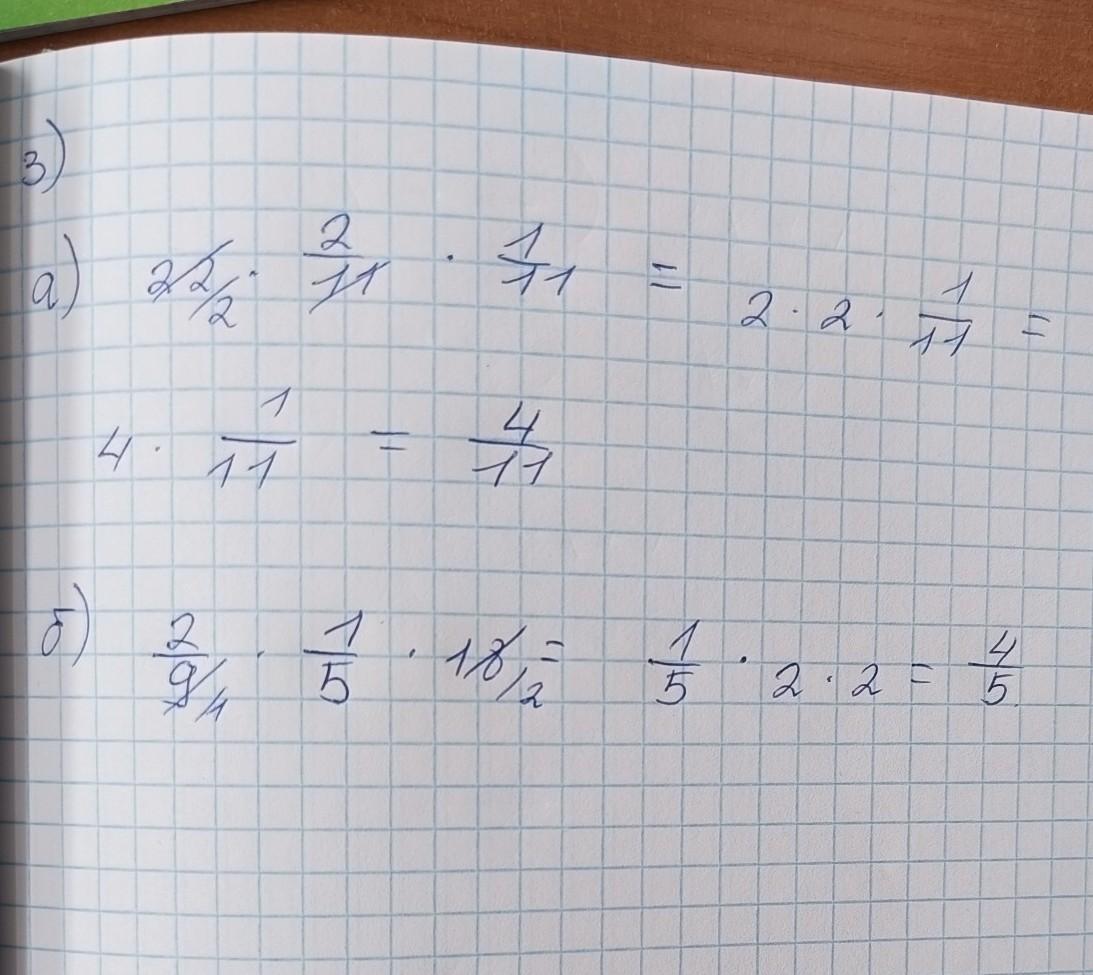 3)
а) 22/2 · 2/11 · 1/11 = 2 · 2 · 1/11 =
4 · 1/11 = 4/11
б) 2/9/1 · 1/5 · 18/2 = 1/5 · 2 · 2 = 4/5